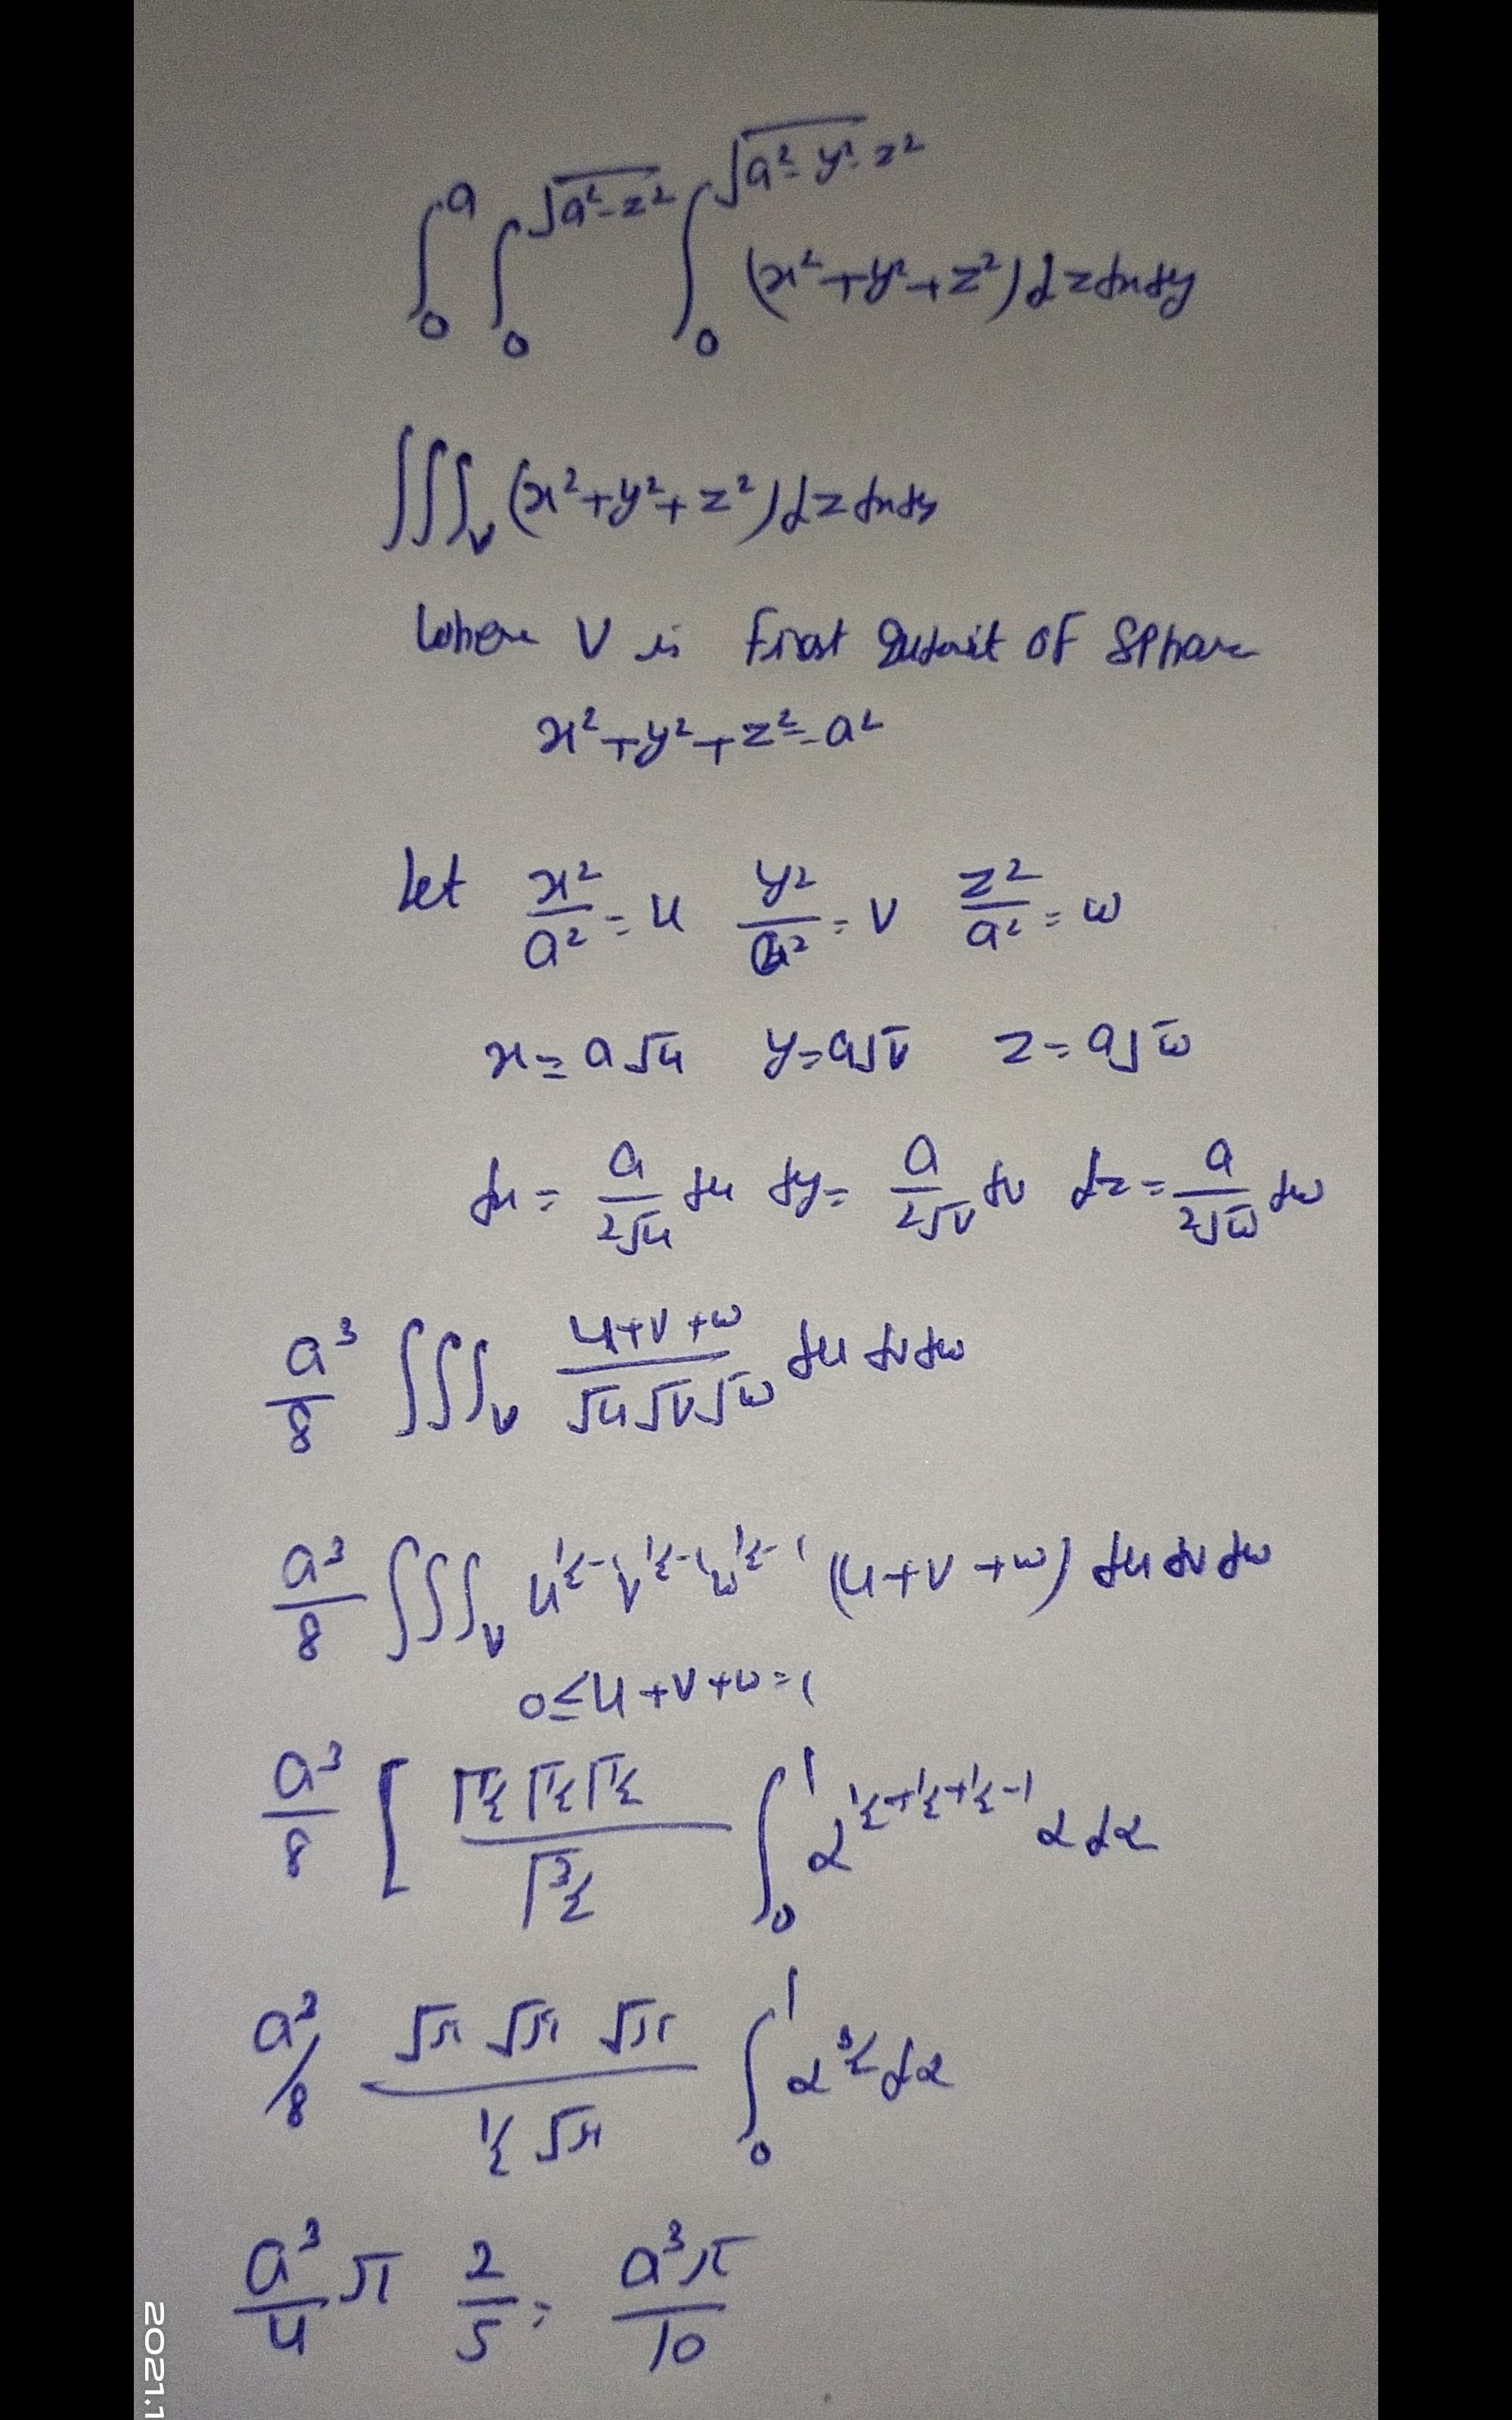 ∫₀^a ∫₀^√(a²-z²) ∫₀^√(a²-y²-z²) (x²+y²+z²) dz dx dy
∫∫∫_V (x²+y²+z²) dz dx dy
Where V is First of Sphare
x²+y²+z²=a²
Let x²/a² = u y²/a² = v z²/a² = w
x = a√u y = a√v z = a√w
dx = a/(2√u) du dy = a/(2√v) dv dz = a/(2√w) dw
a³/8 ∫∫∫_V (u+v+w)/(√u√v√w) du dv dw
a³/8 ∫∫∫_V u^(1/2-1) v^(1/2-1) w^(1/2-1) (u+v+w) du dv dw
0≤u+v+w=1
a³/8 [ (Γ1/2 Γ1/2 Γ1/2)/(Γ3/2) ∫₀¹ α^(1/2+1/2+1/2-1) α dα
a³/8 (√π √π √π)/(1/2 √π) ∫₀¹ α^(3/2) dα
a³/4 π 2/5 = a³π/10
2021.1